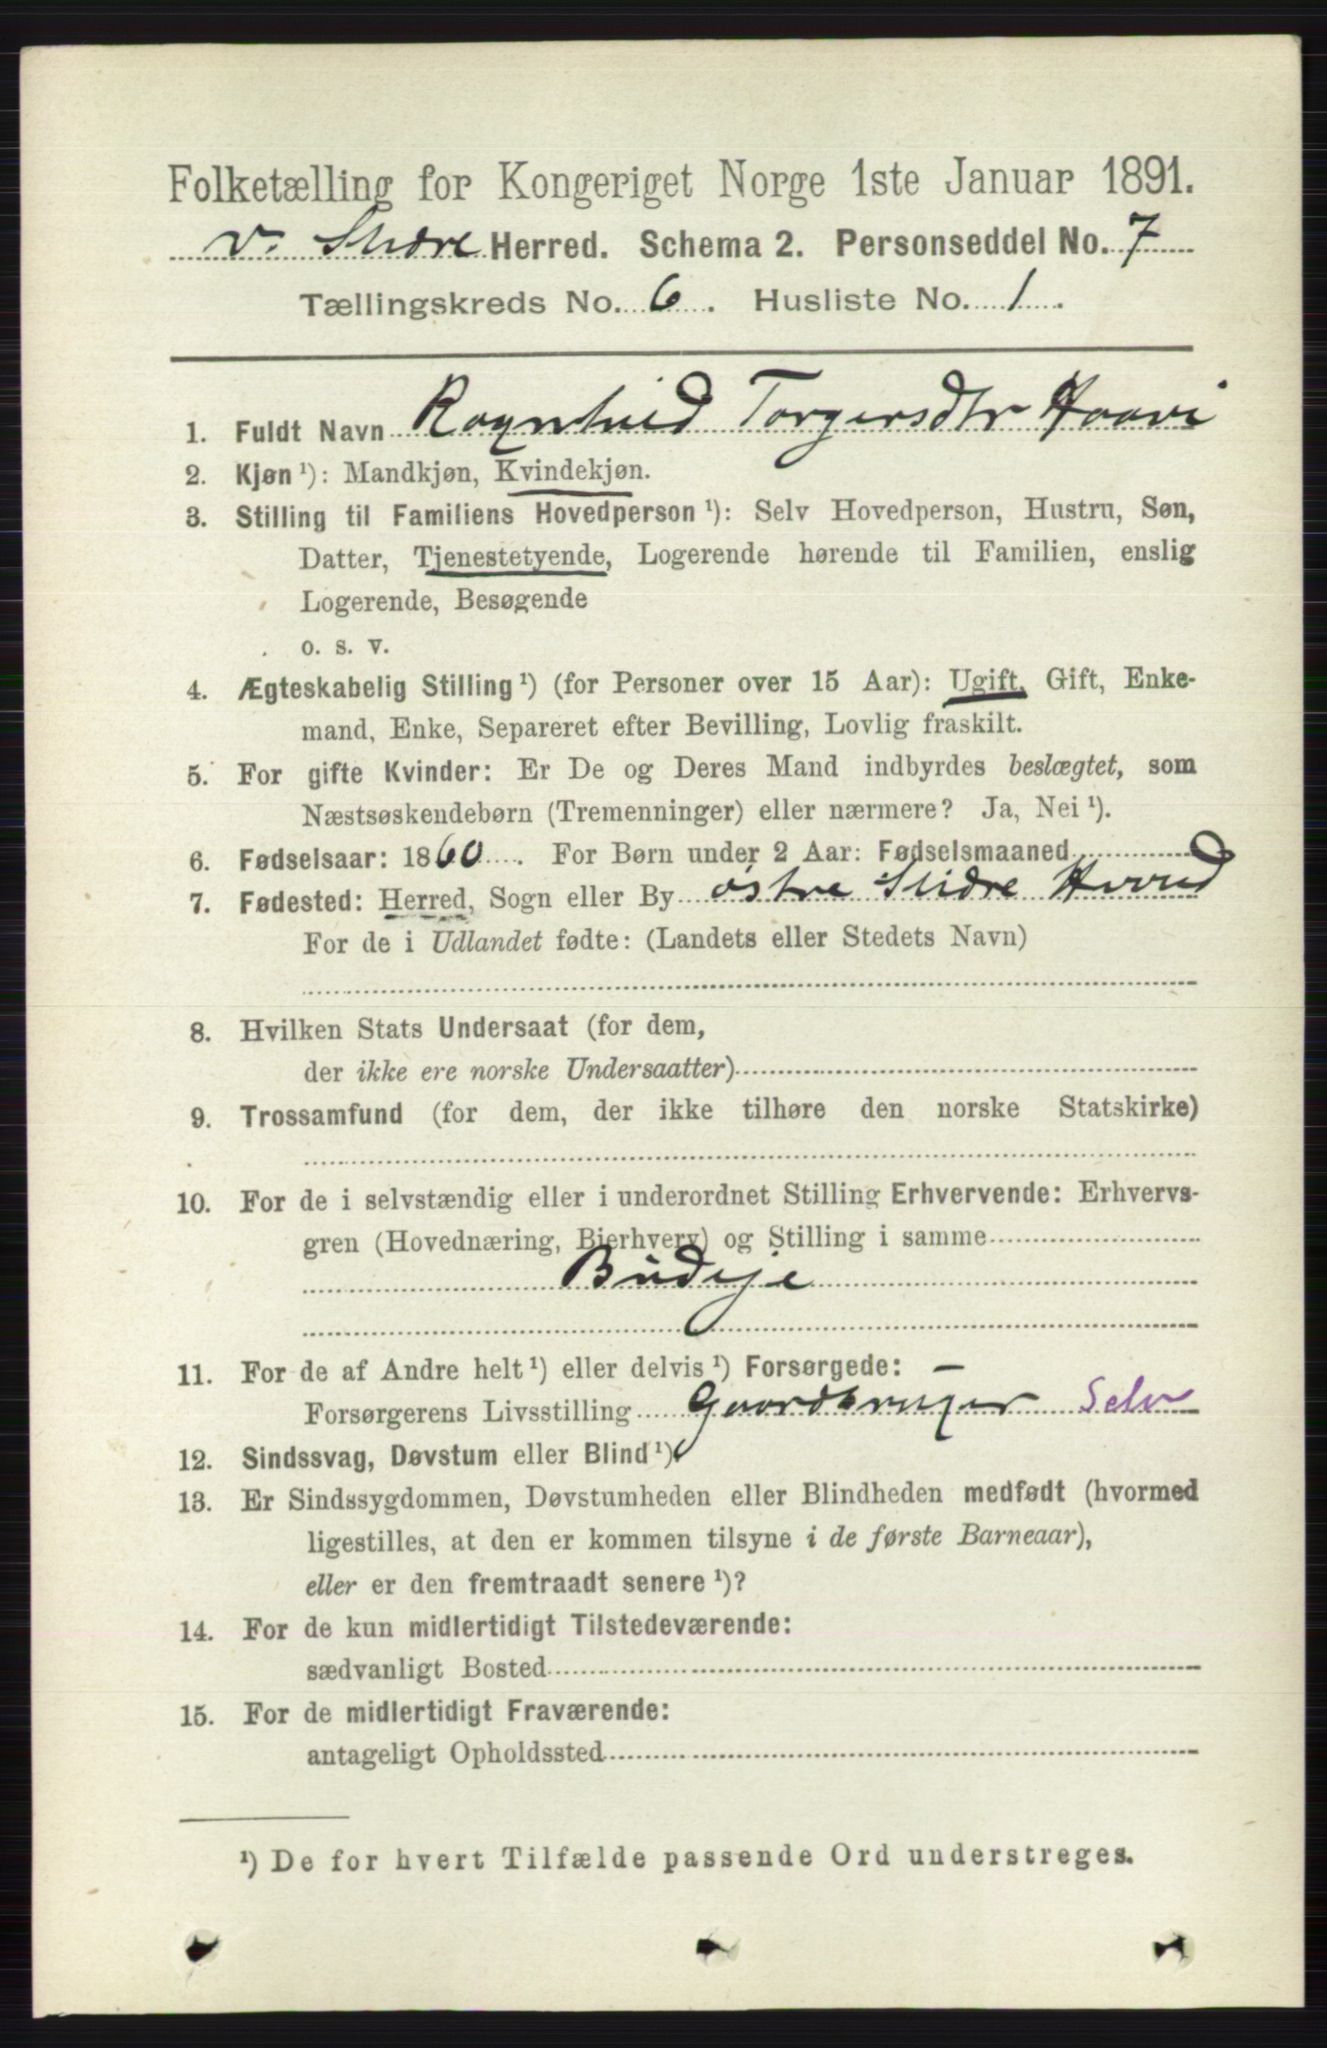 Folketælling for Kongeriget Norge 1ste Januar 1891.
v. Slidre Herred. Schema 2. Personseddel No. 7
Tællingskreds No. 6. Husliste No. 1.
1. Fuldt Navn Ragnhild Torgersdtr Haavi
2. Kjøn ¹): Mandkjøn, Kvindekjøn.
3. Stilling til Familiens Hovedperson ¹): Selv Hovedperson, Hustru, Søn,
Datter, Tjenestetyende, Logerende hørende til Familien, enslig
Logerende, Besøgende
o. s. v.
4. Ægteskabelig Stilling ¹) (for Personer over 15 Aar): Ugift, Gift, Enke-
mand, Enke, Separeret efter Bevilling, Lovlig fraskilt.
5. For gifte Kvinder: Er De og Deres Mand indbyrdes beslægtet, som
Næstsøskendebørn (Tremenninger) eller nærmere? Ja, Nei ¹).
6. Fødselsaar: 1860. For Børn under 2 Aar: Fødselsmaaned
7. Fødested: Herred, Sogn eller By østre Slidre Herred
For de i Udlandet fødte: (Landets eller Stedets Navn)
8. Hvilken Stats Undersaat (for dem,
der ikke ere norske Undersaatter)
9. Trossamfund (for dem, der ikke tilhøre den norske Statskirke)
10. For de i selvstændig eller i underordnet Stilling Erhvervende: Erhvervs-
gren (Hovednæring, Bierhverv) og Stilling i samme
Budeje
11. For de af Andre helt ¹) eller delvis ¹) Forsørgede: —
Forsørgerens Livsstilling Gaardbruger Selv
12. Sindssvag, Døvstum eller Blind ¹)
13. Er Sindssygdommen, Døvstumheden eller Blindheden medfødt (hvormed
ligestilles, at den er kommen tilsyne i de første Barneaar),
eller er den fremtraadt senere ¹)?
14. For de kun midlertidigt Tilstedeværende:
sædvanligt Bosted
15. For de midlertidigt Fraværende:
antageligt Opholdssted
¹) De for hvert Tilfælde passende Ord understreges.